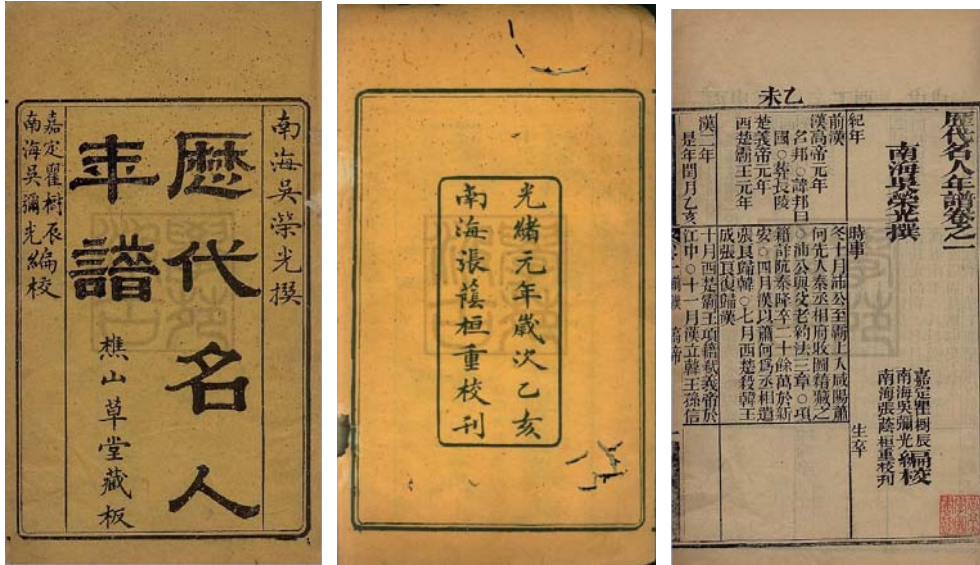 南海吳榮光撰
歷代名人
年譜
樵山草堂藏板
嘉定瞿樹辰
南海吳彌光編校
光緒元年歲次乙亥
南海張蔭桓重校刊
乙未
歷代名人年譜卷之一
南海吳榮光撰
嘉定瞿樹辰
南海吳彌光編校
南海張蔭桓重校刊
紀年
時事
生卒
前漢
漢高帝元年
名邦○諱邦曰
國○葬長陵
楚義帝元年
西楚霸王元年
冬十月沛公至霸上入咸陽蕭
何先入秦丞相府收圖籍藏之
○沛公與父老約法三章○項
籍詐阬秦降卒二十餘萬於新
安○四月漢以蕭何爲丞相遣
張良歸韓○七月西楚殺韓王
成張良復歸漢
漢二年
是年閏月乙亥
十月西楚霸王項籍弑義帝於
江中○十一月漢立韓王孫信